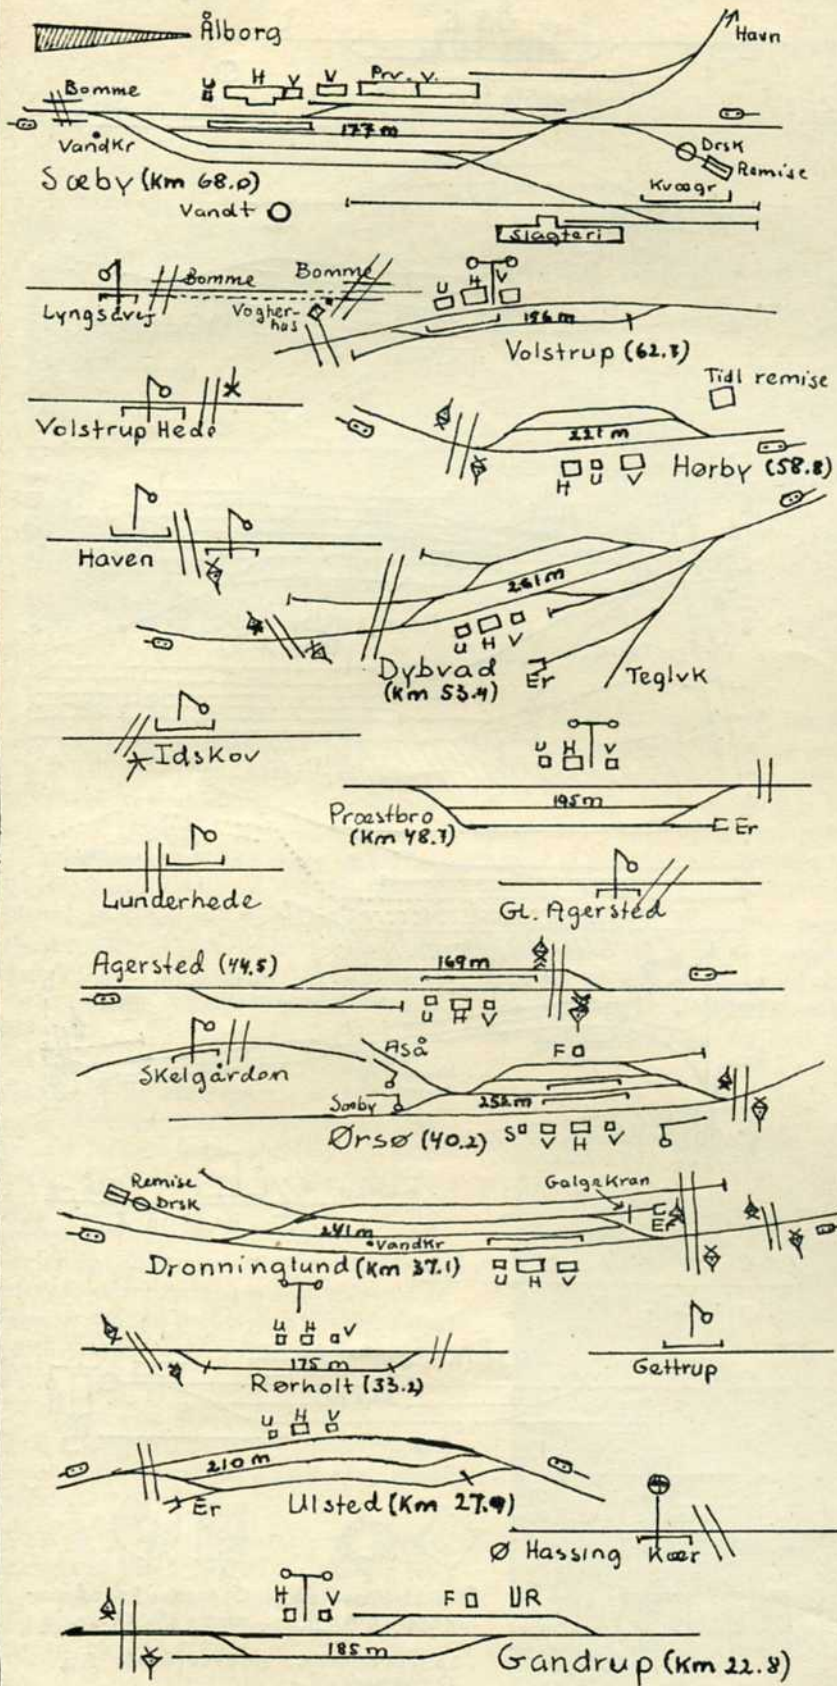 Ålborg
Havn
Bomme
U H V V Prv. V.
VandKr
177 m
Drsk
Remise
Sæby (Km 68.0)
Kvægr
Vandt
Slagteri
Bomme Bomme
Lyngsåvej
Vogter-
hus
U H V
156 m
Volstrup (62.3)
Tidl remise
Volstrup Hede
221 m
H U V
Hørby (58.8)
Haven
261 m
U H V
Dybvad
(Km 53.4)
Er
Teglvk
Idskov
U H V
195 m
Præstbro
(Km 48.3)
Er
Lunderhede
Gl. Agersted
Agersted (44.5)
169 m
U H V
Skelgården
Aså
F
Sæby
252 m
Ørsø (40.2)
S V H V
Remise
Drsk
Galgekran
Er
241 m
VandKr
Dronninglund (Km 37.1)
U H V
U H V
175 m
Rørholt (33.2)
Gettrup
U H V
210 m
Er
Ulsted (Km 27.9)
Ø Hassing Kær
H V
F UR
185 m
Gandrup (Km 22.8)